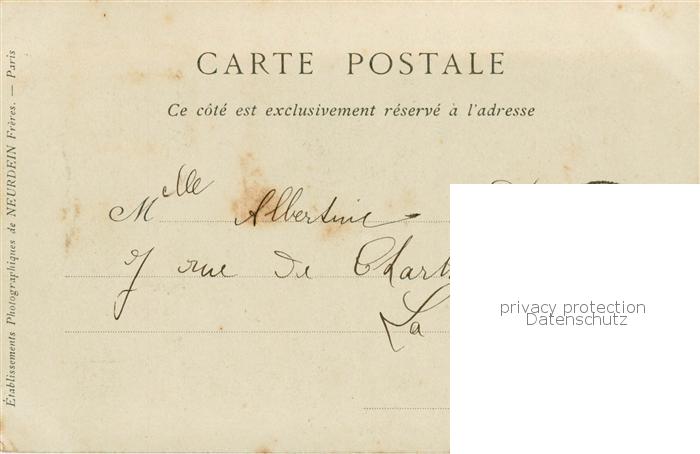 CARTE POSTALE
Ce côté est exclusivement réservé à l'adresse
Mlle Albertine
7 rue de
La
privacy protection
Datenschutz
Établissements Photographiques de NEURDEIN Frères. — Paris